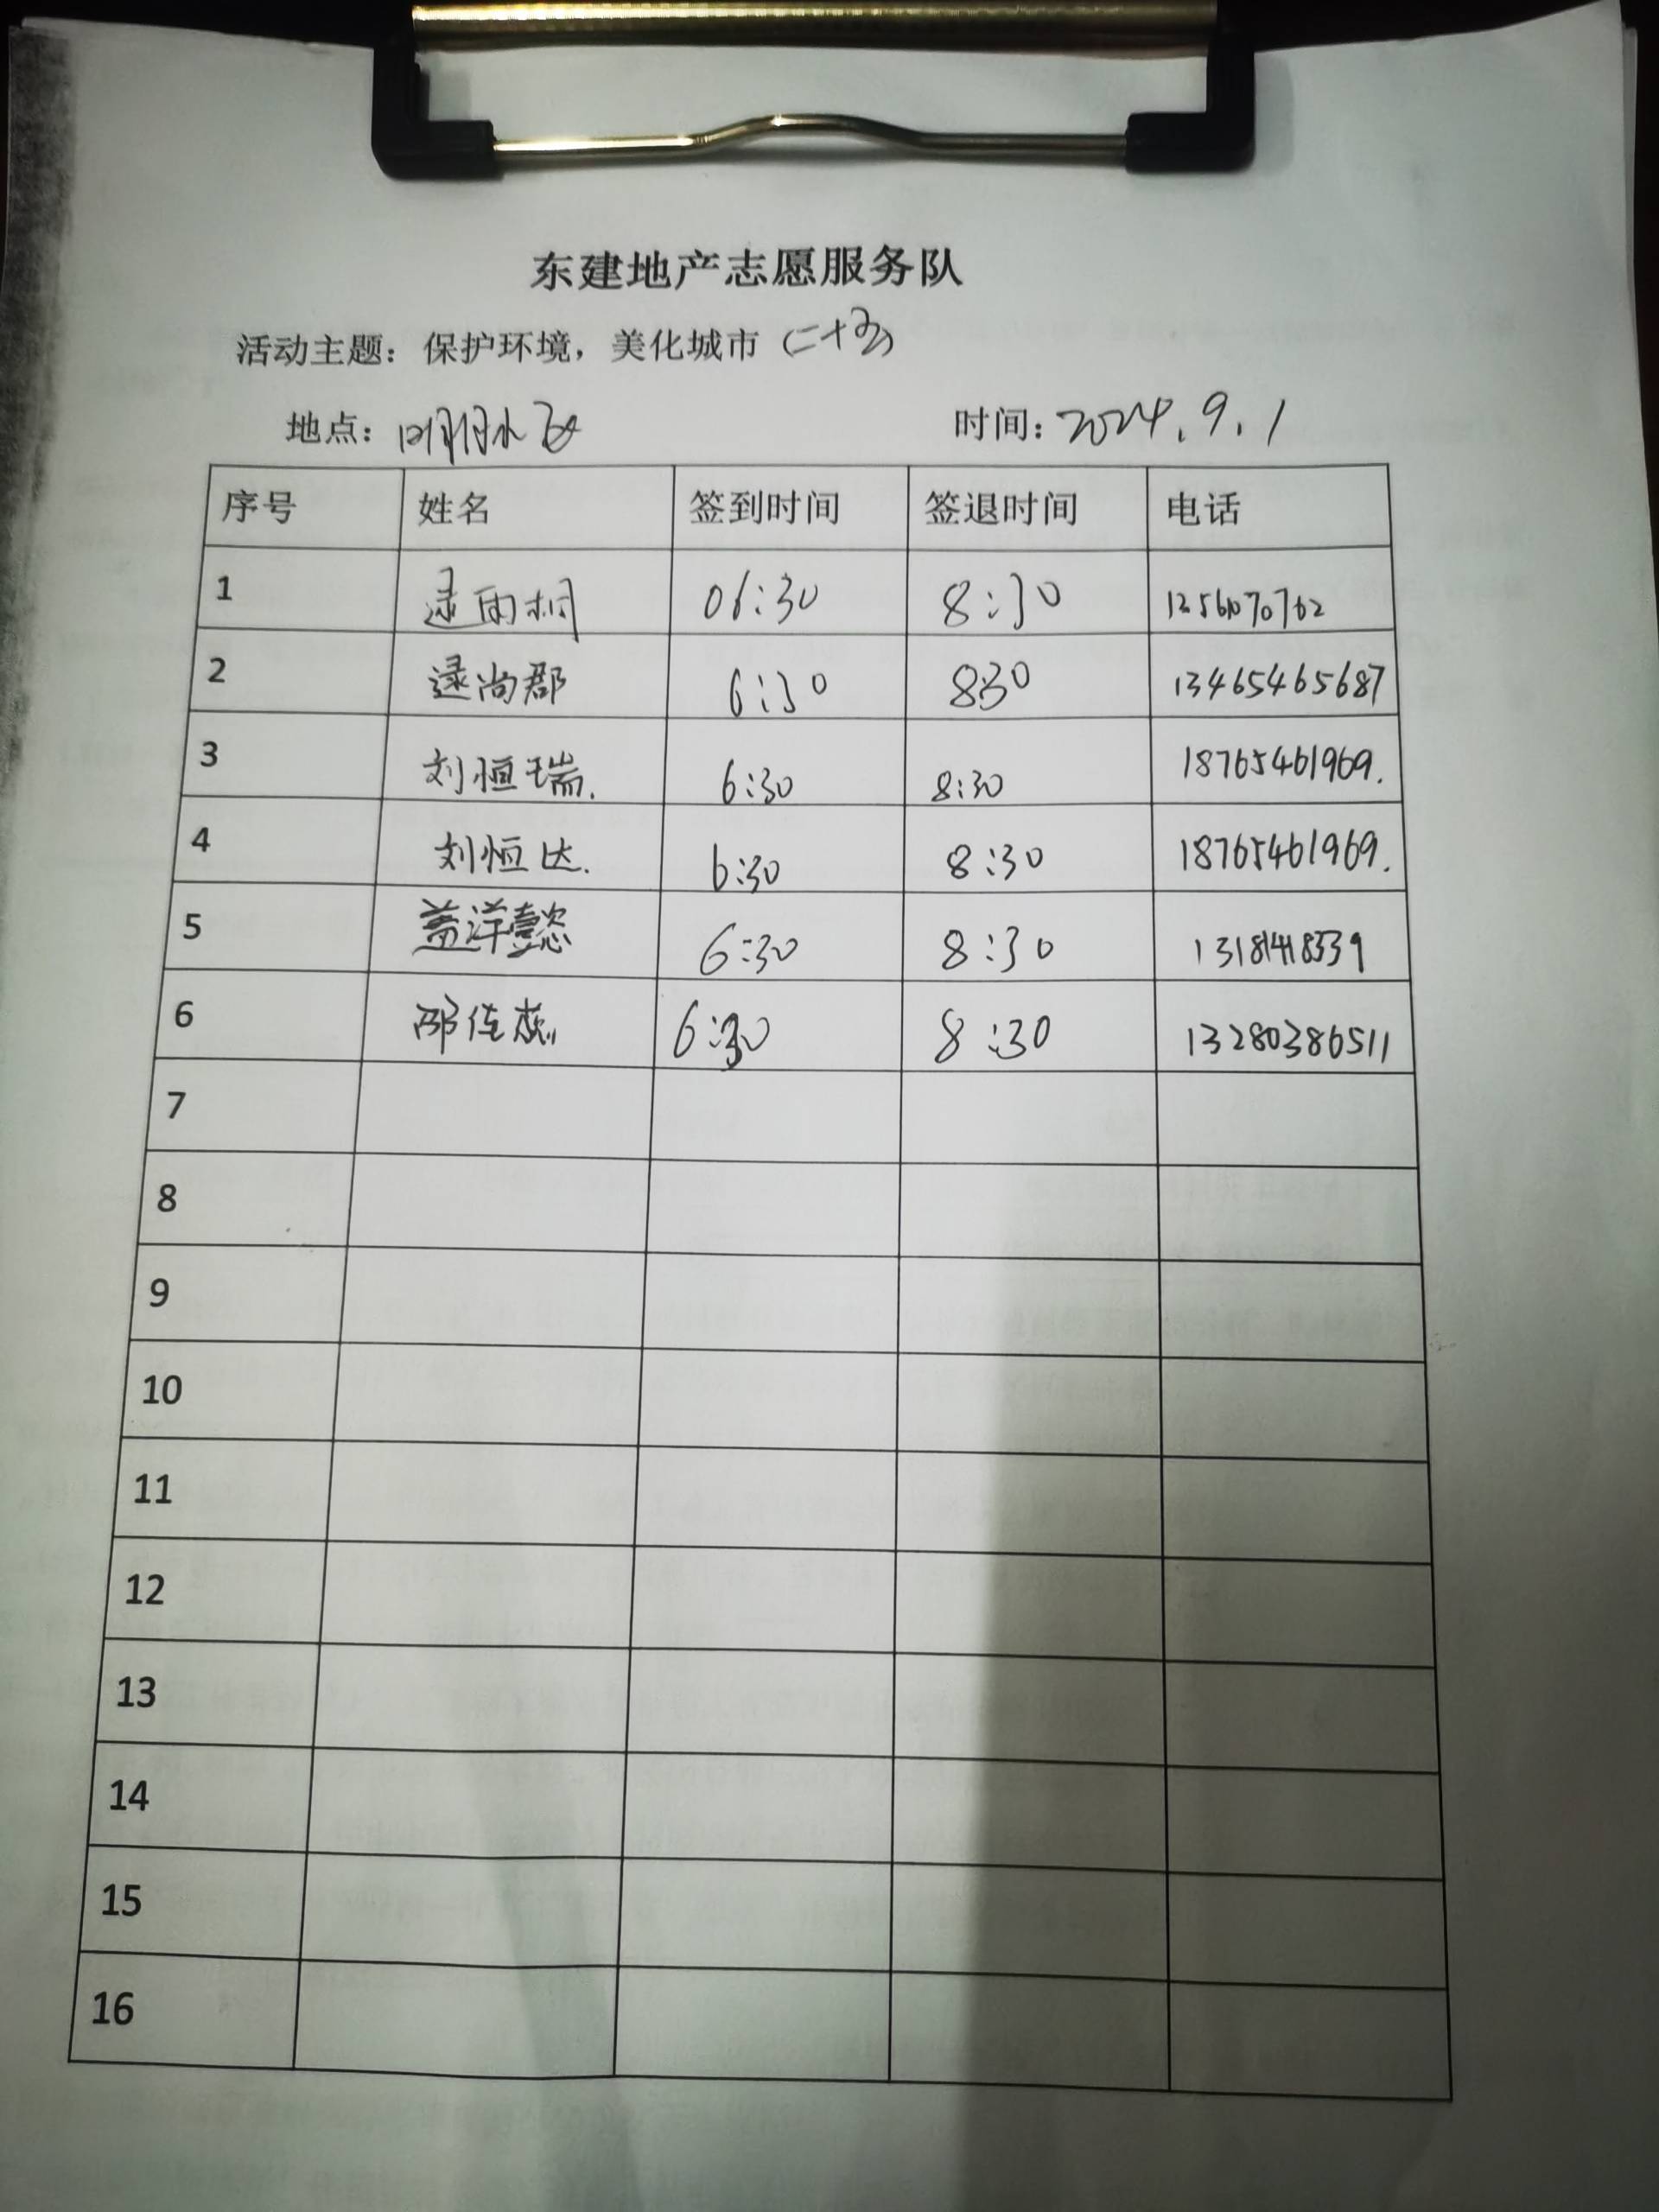 东建地产志愿服务队
活动主题：保护环境，美化城市（二十五）
地点：明月水
时间：2024.9.1
序号 姓名 签到时间 签退时间 电话
1 逯雨桐 06:30 8:30
2 逯尚郡 6:30 830 13465465687
3 刘恒瑞. 6:30 8:30 18765461969.
4 刘恒达. 6:30 8:30 18765461969.
5 盖洋懿 6:30 8:30
6 邵佳 6:30 8:30 13280386511
7
8
9
10
11
12
13
14
15
16